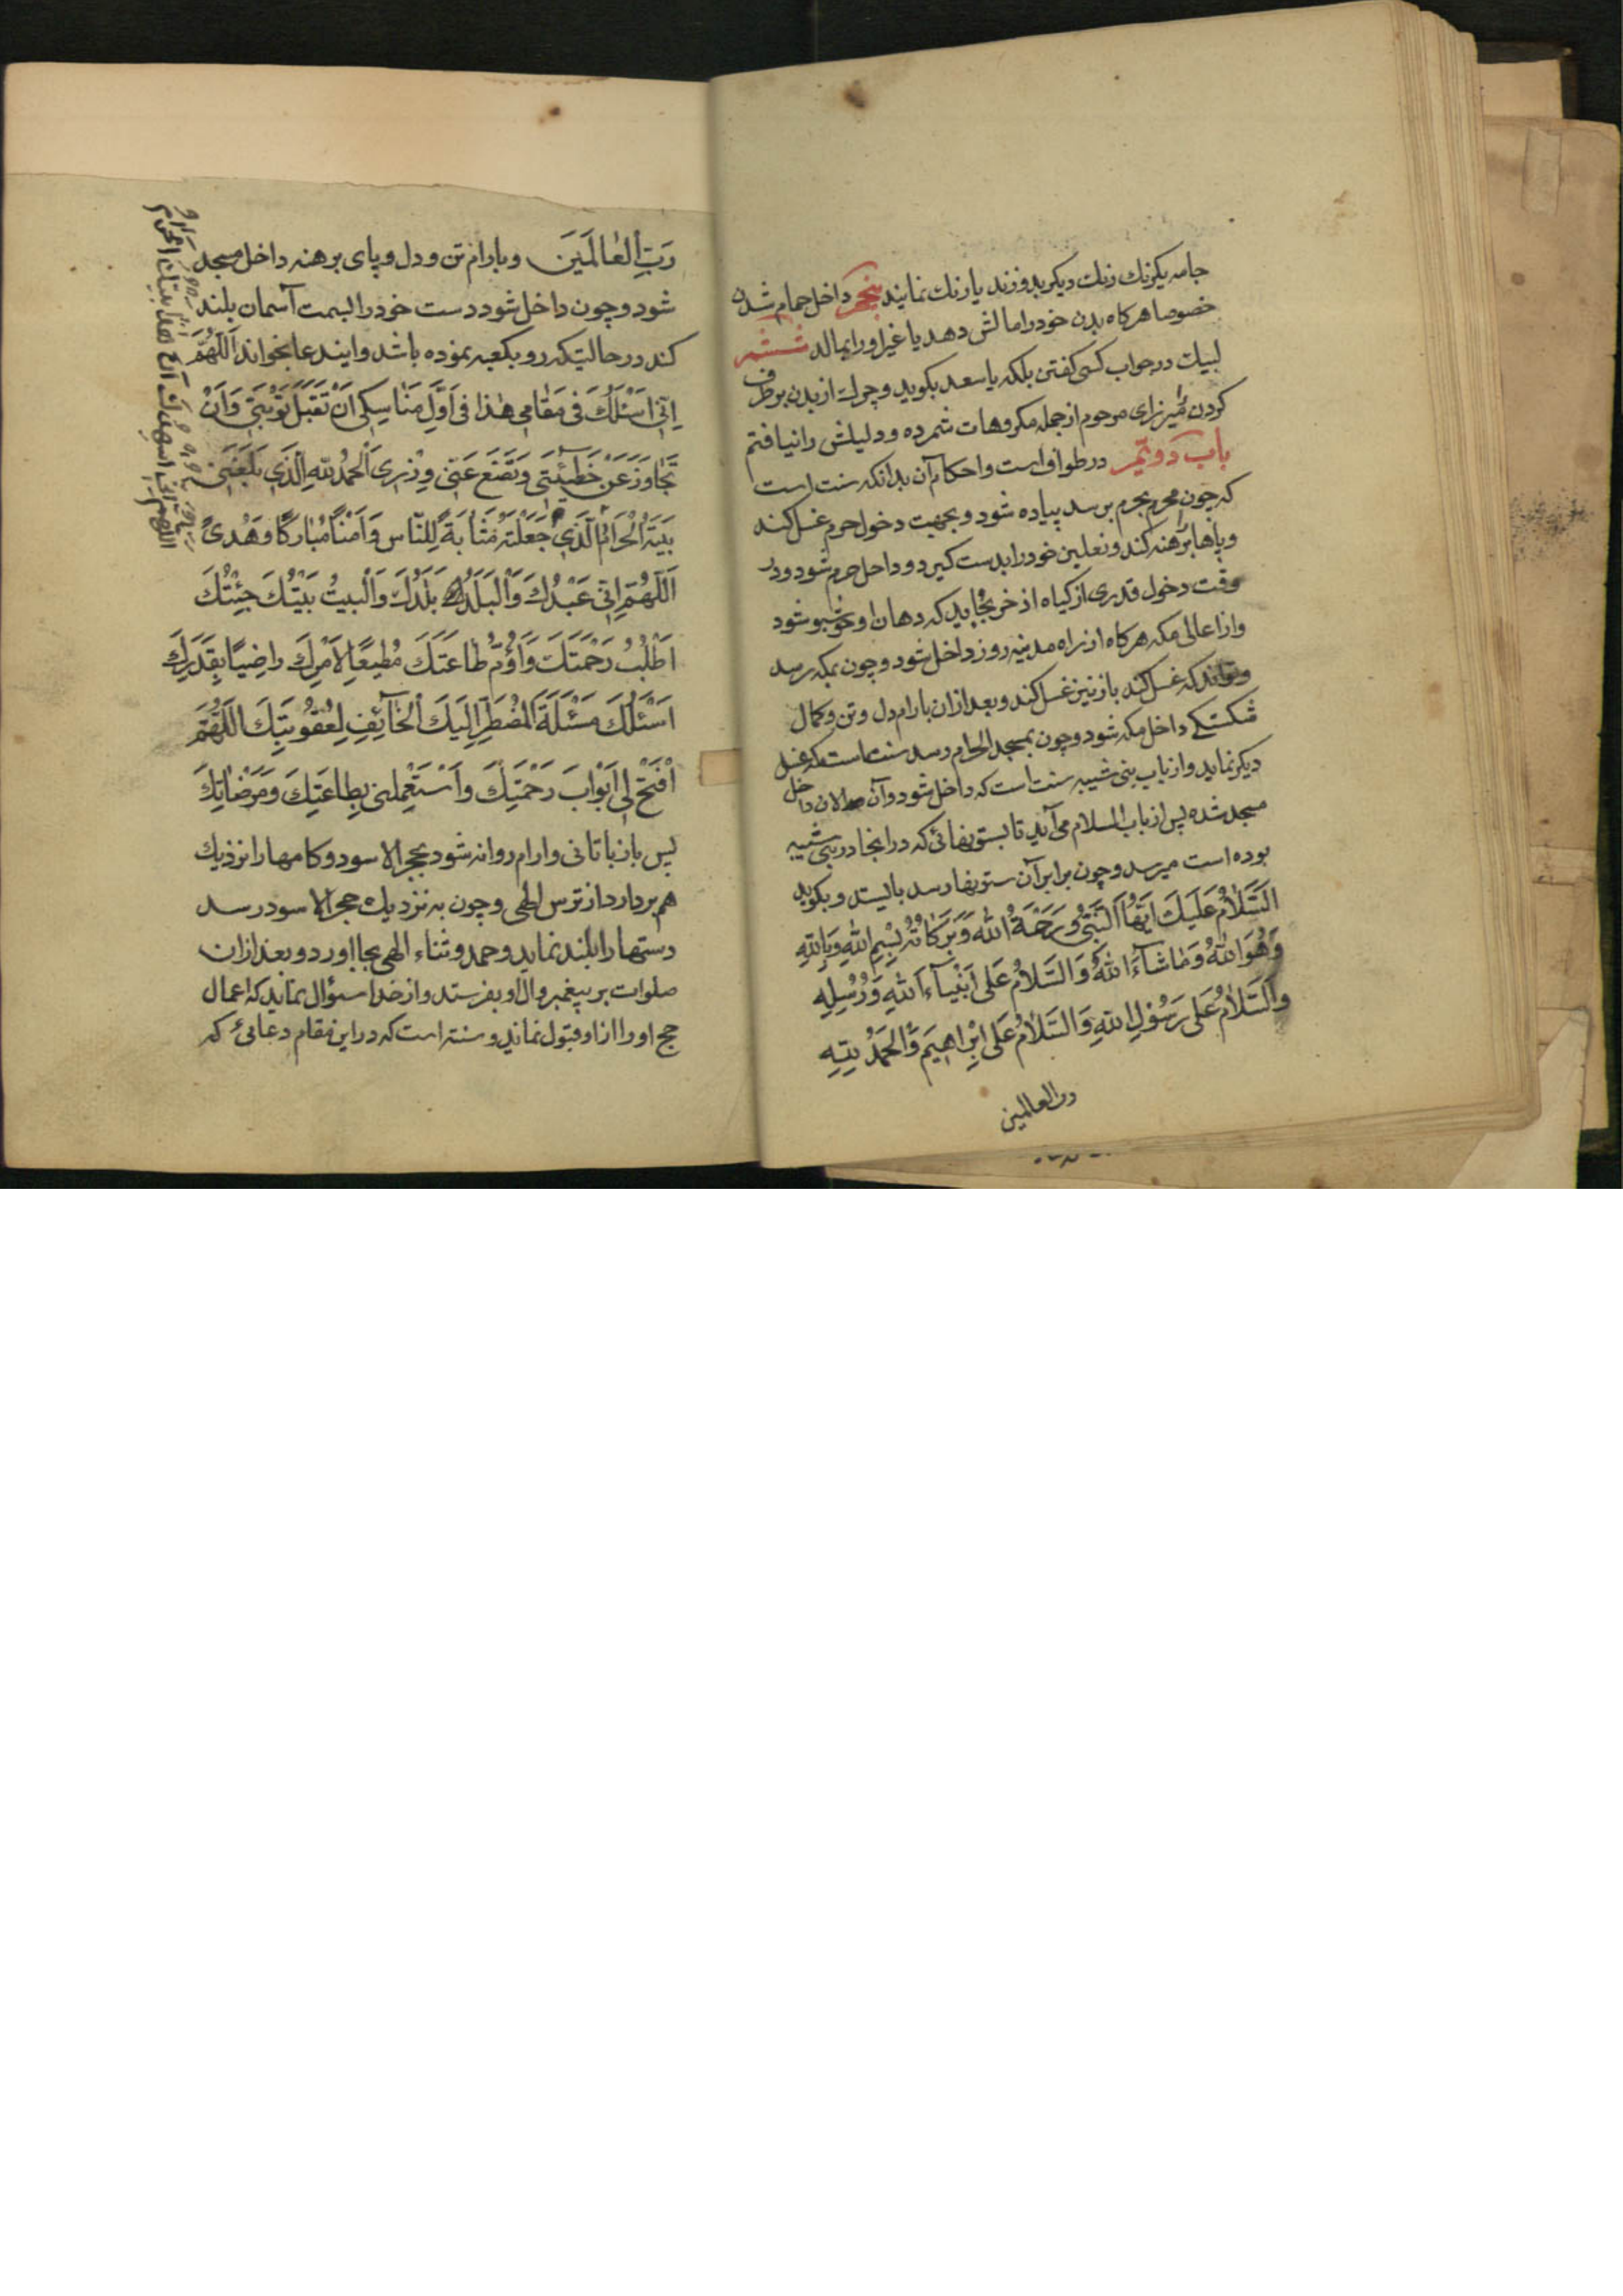 جامه یکرنك رنك دیکر بدوزند یا رنك نمایند پنجم داخل حمام شدن
خصوصا هرکاه بدن خود را مالش دهد یا غیر او را بمالد ششم
لبیك در جواب کسی کفتن بلکه یا سعد بکوید و چرك از بدن برطرف
کردن میرزای مرحوم از جمله مکروهات شمرده و دلیلش را نیافتم
باب دویم در طواف است و احکام آن بدانکه سنت است
که چون محرم بحرم برسد پیاده شود و بجهت دخول حرم غسل کند
و پاها برهنه کند و نعلین خود را بدست کیرد و داخل حرم شود و در
وقت دخول قدری از کیاه اذخر بخاید که دهان او خوشبو شود
و از اعالی مکه هرکاه از راه مدینه رود داخل شود و چون بمکه رسد
و تواند که غسل کند باز نیز غسل کند و بعد از ان بارام دل و تن و کمال
شکستکی داخل مکه شود و چون بمسجد الحرام رسد سنت است که غسل
دیکر نماید و از باب بنی شیبه سنت است که داخل شود و آن الان داخل
مسجد شده پس از باب السلام می آید تا بستونهائی که در اینجا در بنی شیبه
بوده است میرسد و چون برابر آن ستونها رسد بایستد و بکوید
اَلسَّلامُ عَلَیكَ اَیُّهَا النَّبِیُّ وَرَحْمَةُ اللهِ وَبَرَكاتُهُ بِسْمِ اللهِ وَبِاللهِ
وَهُوَ اللهُ وَمٰا شٰآءَ اللهُ وَالسَّلامُ عَلی اَنْبِیٰآءِ اللهِ وَرُسُلِهِ
وَالسَّلامُ عَلی رَسُولِ اللهِ وَالسَّلامُ عَلی اِبْراهیمَ وَالْحَمْدُ لِلّهِ
رب العالمین
رَبِّ الْعٰالَمَینَ وبارام تن و دل و پای برهنه داخل مسجد
شود و چون داخل شود دست خود را بسمت آسمان بلند
کند در حالتیکه رو بکعبه نموده باشد و ایندعا بخواند اَللّهُمَّ
اِنّی اَسْئَلُكَ فی مَقٰامی هٰذا فی اَوَّلِ مَنٰاسِكی اَنْ تَقْبَلَ تَوْبَتی وَاَنْ
تَجٰاوَزَ عَنْ خَطیئَتی وَتَضَعَ عَنّی وِزْری اَلْحَمْدُ لِلّهِ الَّذی بَلَّغَنی
بَیْتَهُ الْحَرٰامَ الَّذی جَعَلْتَهُ مَثٰابَةً لِلنّاسِ وَاَمْنًا مُبٰارَكًا وَهُدیً
اَللّهُمَّ اِنّی عَبْدُكَ وَالْبَلَدُ بَلَدُكَ وَالْبَیتُ بَیْتُكَ جِئْتُكَ
اَطْلُبُ رَحْمَتَكَ وَاَؤُمُّ طٰاعَتَكَ مُطیعًا لِاَمْرِكَ راضِیًا بِقَدَرِكَ
اَسْئَلُكَ مَسْئَلَةَ الْمُضْطَرِّ اِلَیكَ الْخٰآئِفِ لِعُقُوبَتِكَ اللّهُمَّ
افْتَحْ لی اَبْوٰابَ رَحْمَتِكَ وَاسْتَعْمِلْنی بِطٰاعَتِكَ وَمَرْضٰاتِكَ
پس باز باتانی و ارام روانه شود بحجر الاسود و کامها را نزدیك
هم بردارد از ترس الهی و چون به نزدیك حجر الاسود رسد
دستها را بلند نماید و حمد و ثناء الهی بجا اورد و بعد از ان
صلوات بر پیغمبر و ال او بفرستد و از خدا سئوال نماید که اعمال
حج او را از او قبول نماید و سنت است که در این مقام دعائی که
اللهم انی اشهدك ان هذا بیتك الحرام